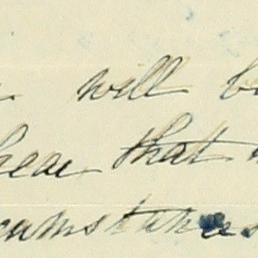 will
hear that
cumstances